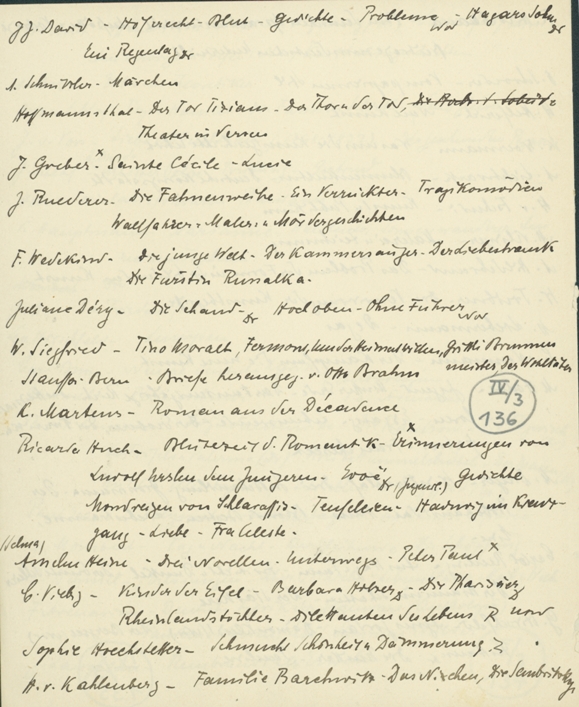 J. J. David - Höferecht - Blut - Gedichte - Probleme Nov - Hagars Sohn Dr
Ein Regentag Dr
A. Schnitzler - Märchen
Hofmannsthal - Der Tod Tizians - Der Thor u der Tod,
Theater in Versen
J. Greber - x Sainte Cécile - Lucie
J. Ruederer - Die Fahnenweihe - Ein Verrückter - Tragikomödien
Wallfahrer-, Maler- u Mördergeschichten
F. Wedekind - Die junge Welt - Der Kammersänger - Der Liebestrank
Die Fürstin Russalka -
Juliane Déry - Die Schand- Dr Hoch oben - Ohne Führer Nov
W. Siegfried - Tino Moralt, Fermont, Um der Heimat willen, Gritli Brunnen
meister, Der Wohltäter
Stauffer-Bern - Briefe herausgeg. v. Otto Brahm
K. Martens - Roman aus der Décadence
IV/3
136
Ricarda Huch - Blütezeit d. Romantik - x Erinnerungen von
Ludolf Ursleu dem Jüngeren - Evoë Dr (Jugendl.) Gedichte
Mondreigen von Schlaraffis - Teufeleien - Haduvig im Kreuz-
gang - Liebe - Fra Celeste -
(Selma)
Anselm Heine - Drei Novellen - Unterwegs - Peter Paul x
C. Viebig - Kinder der Eifel - Barbara Holzer Dr - Die Pharisäer
Rheinlandstöchter - Dilettanten des Lebens R Nov
Sophie Hoechstetter - Sehnsucht Schönheit u Dämmerung
H. v. Kahlenberg - Familie Barchwitz - Das Nixchen, Die Sembritzkys